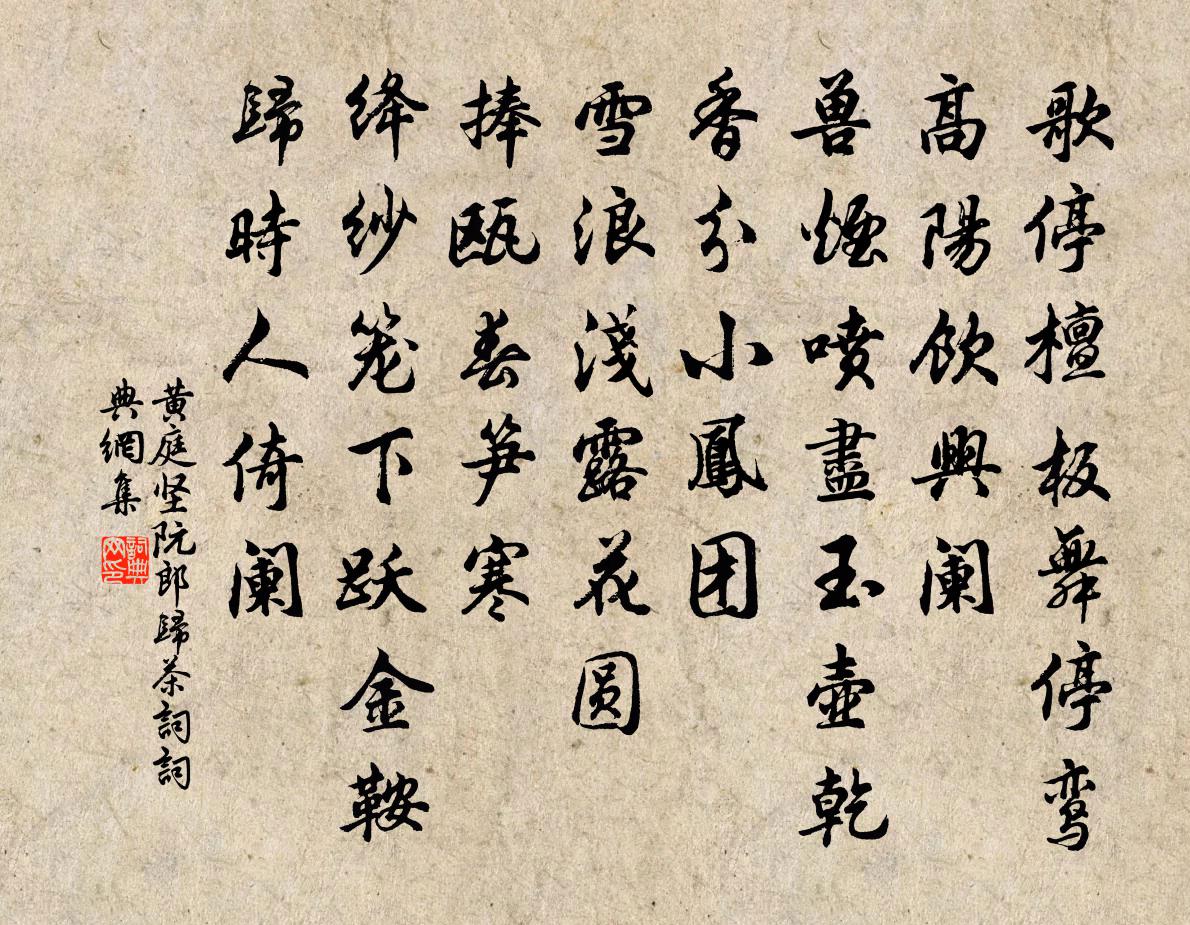 歌停檀板舞停鸾
高陽飲興阑
兽煙噴盡玉壺乾
香分小鳳团
雪浪淺露花圆
捧瓯春笋寒
绛纱笼下跃金鞍
歸時人倚阑
黄庭坚阮郎歸茶詞詞
典網集
詞典
网印